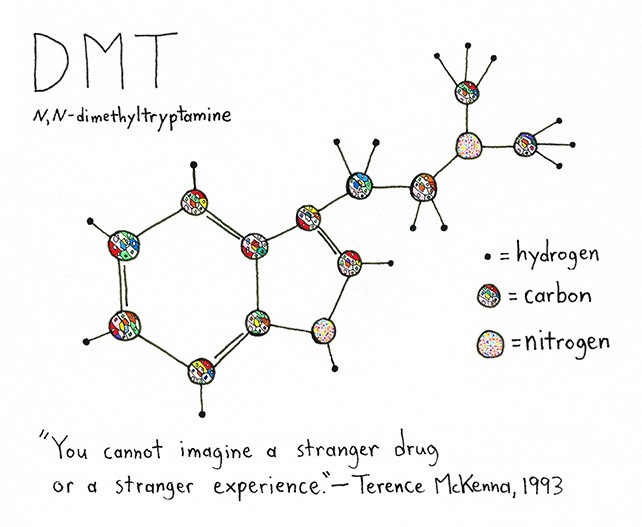 DMT
N,N-dimethyltryptamine
• = hydrogen
= carbon
= nitrogen
"You cannot imagine a stranger drug
or a stranger experience." — Terence McKenna, 1993